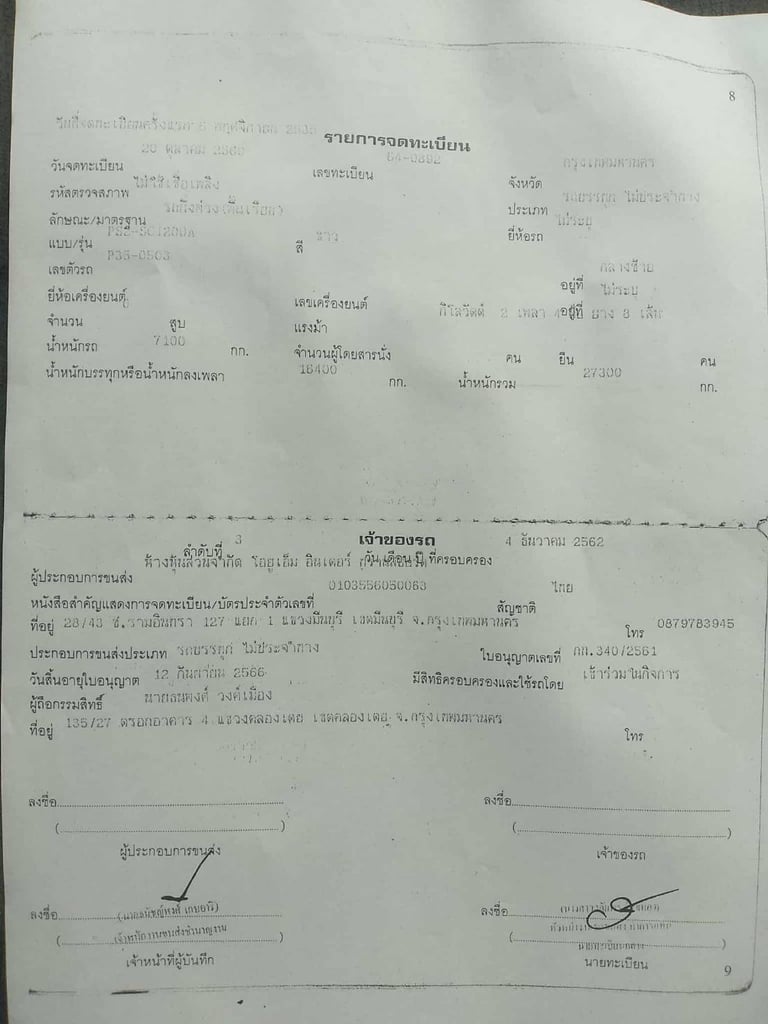 8
วันที่จดทะเบียนครั้งแรก 6 พฤศจิกายน
รายการจดทะเบียน
วันจดทะเบียน 20 ตุลาคม เลขทะเบียน 64-0392 จังหวัด กรุงเทพมหานคร
รหัสตรวจสภาพ ไม่ใช้เชื้อเพลิง ประเภท รถบรรทุก ไม่ประจำทาง
ลักษณะ/มาตรฐาน รถกึ่งพ่วง ยี่ห้อรถ ไม่ระบุ
แบบ/รุ่น สี ขาว
เลขตัวรถ P35-0503 อยู่ที่ กลางซ้าย
ยี่ห้อเครื่องยนต์ เลขเครื่องยนต์ อยู่ที่ ไม่ระบุ
จำนวน 0 สูบ แรงม้า กิโลวัตต์ 2 เพลา 4 ล้อ ยาง 8 เส้น
น้ำหนักรถ 7100 กก. จำนวนผู้โดยสารนั่ง คน ยืน คน
น้ำหนักบรรทุกหรือน้ำหนักลงเพลา 16400 กก. น้ำหนักรวม 27300 กก.
เจ้าของรถ
ลำดับที่ 3 วัน เดือน ปี ที่ครอบครอง 4 ธันวาคม 2562
ผู้ประกอบการขนส่ง ห้างหุ้นส่วนจำกัด โอยูเอ็ม อินเตอร์
หนังสือสำคัญแสดงการจดทะเบียน/บัตรประจำตัวเลขที่ 0103556050063 สัญชาติ ไทย
ที่อยู่ 28/43 ซ.รามอินทรา 127 แยก 1 แขวงมีนบุรี เขตมีนบุรี จ.กรุงเทพมหานคร โทร 0879783945
ประกอบการขนส่งประเภท รถบรรทุก ไม่ประจำทาง ใบอนุญาตเลขที่ กท.340/2561
วันสิ้นอายุใบอนุญาต 12 กันยายน 2566 มีสิทธิครอบครองและใช้รถโดย เข้าร่วมในกิจการ
ผู้ถือกรรมสิทธิ์ นายธนพงศ์ วงค์เมือง
ที่อยู่ 135/27 ตรอกอาคาร 4 แขวงคลองเตย เขตคลองเตย จ.กรุงเทพมหานคร โทร
ลงชื่อ ลงชื่อ
( ) ( )
ผู้ประกอบการขนส่ง เจ้าของรถ
ลงชื่อ ลงชื่อ
(เจ้าพนักงานขนส่งชำนาญงาน)
เจ้าหน้าที่ผู้บันทึก นายทะเบียน
9